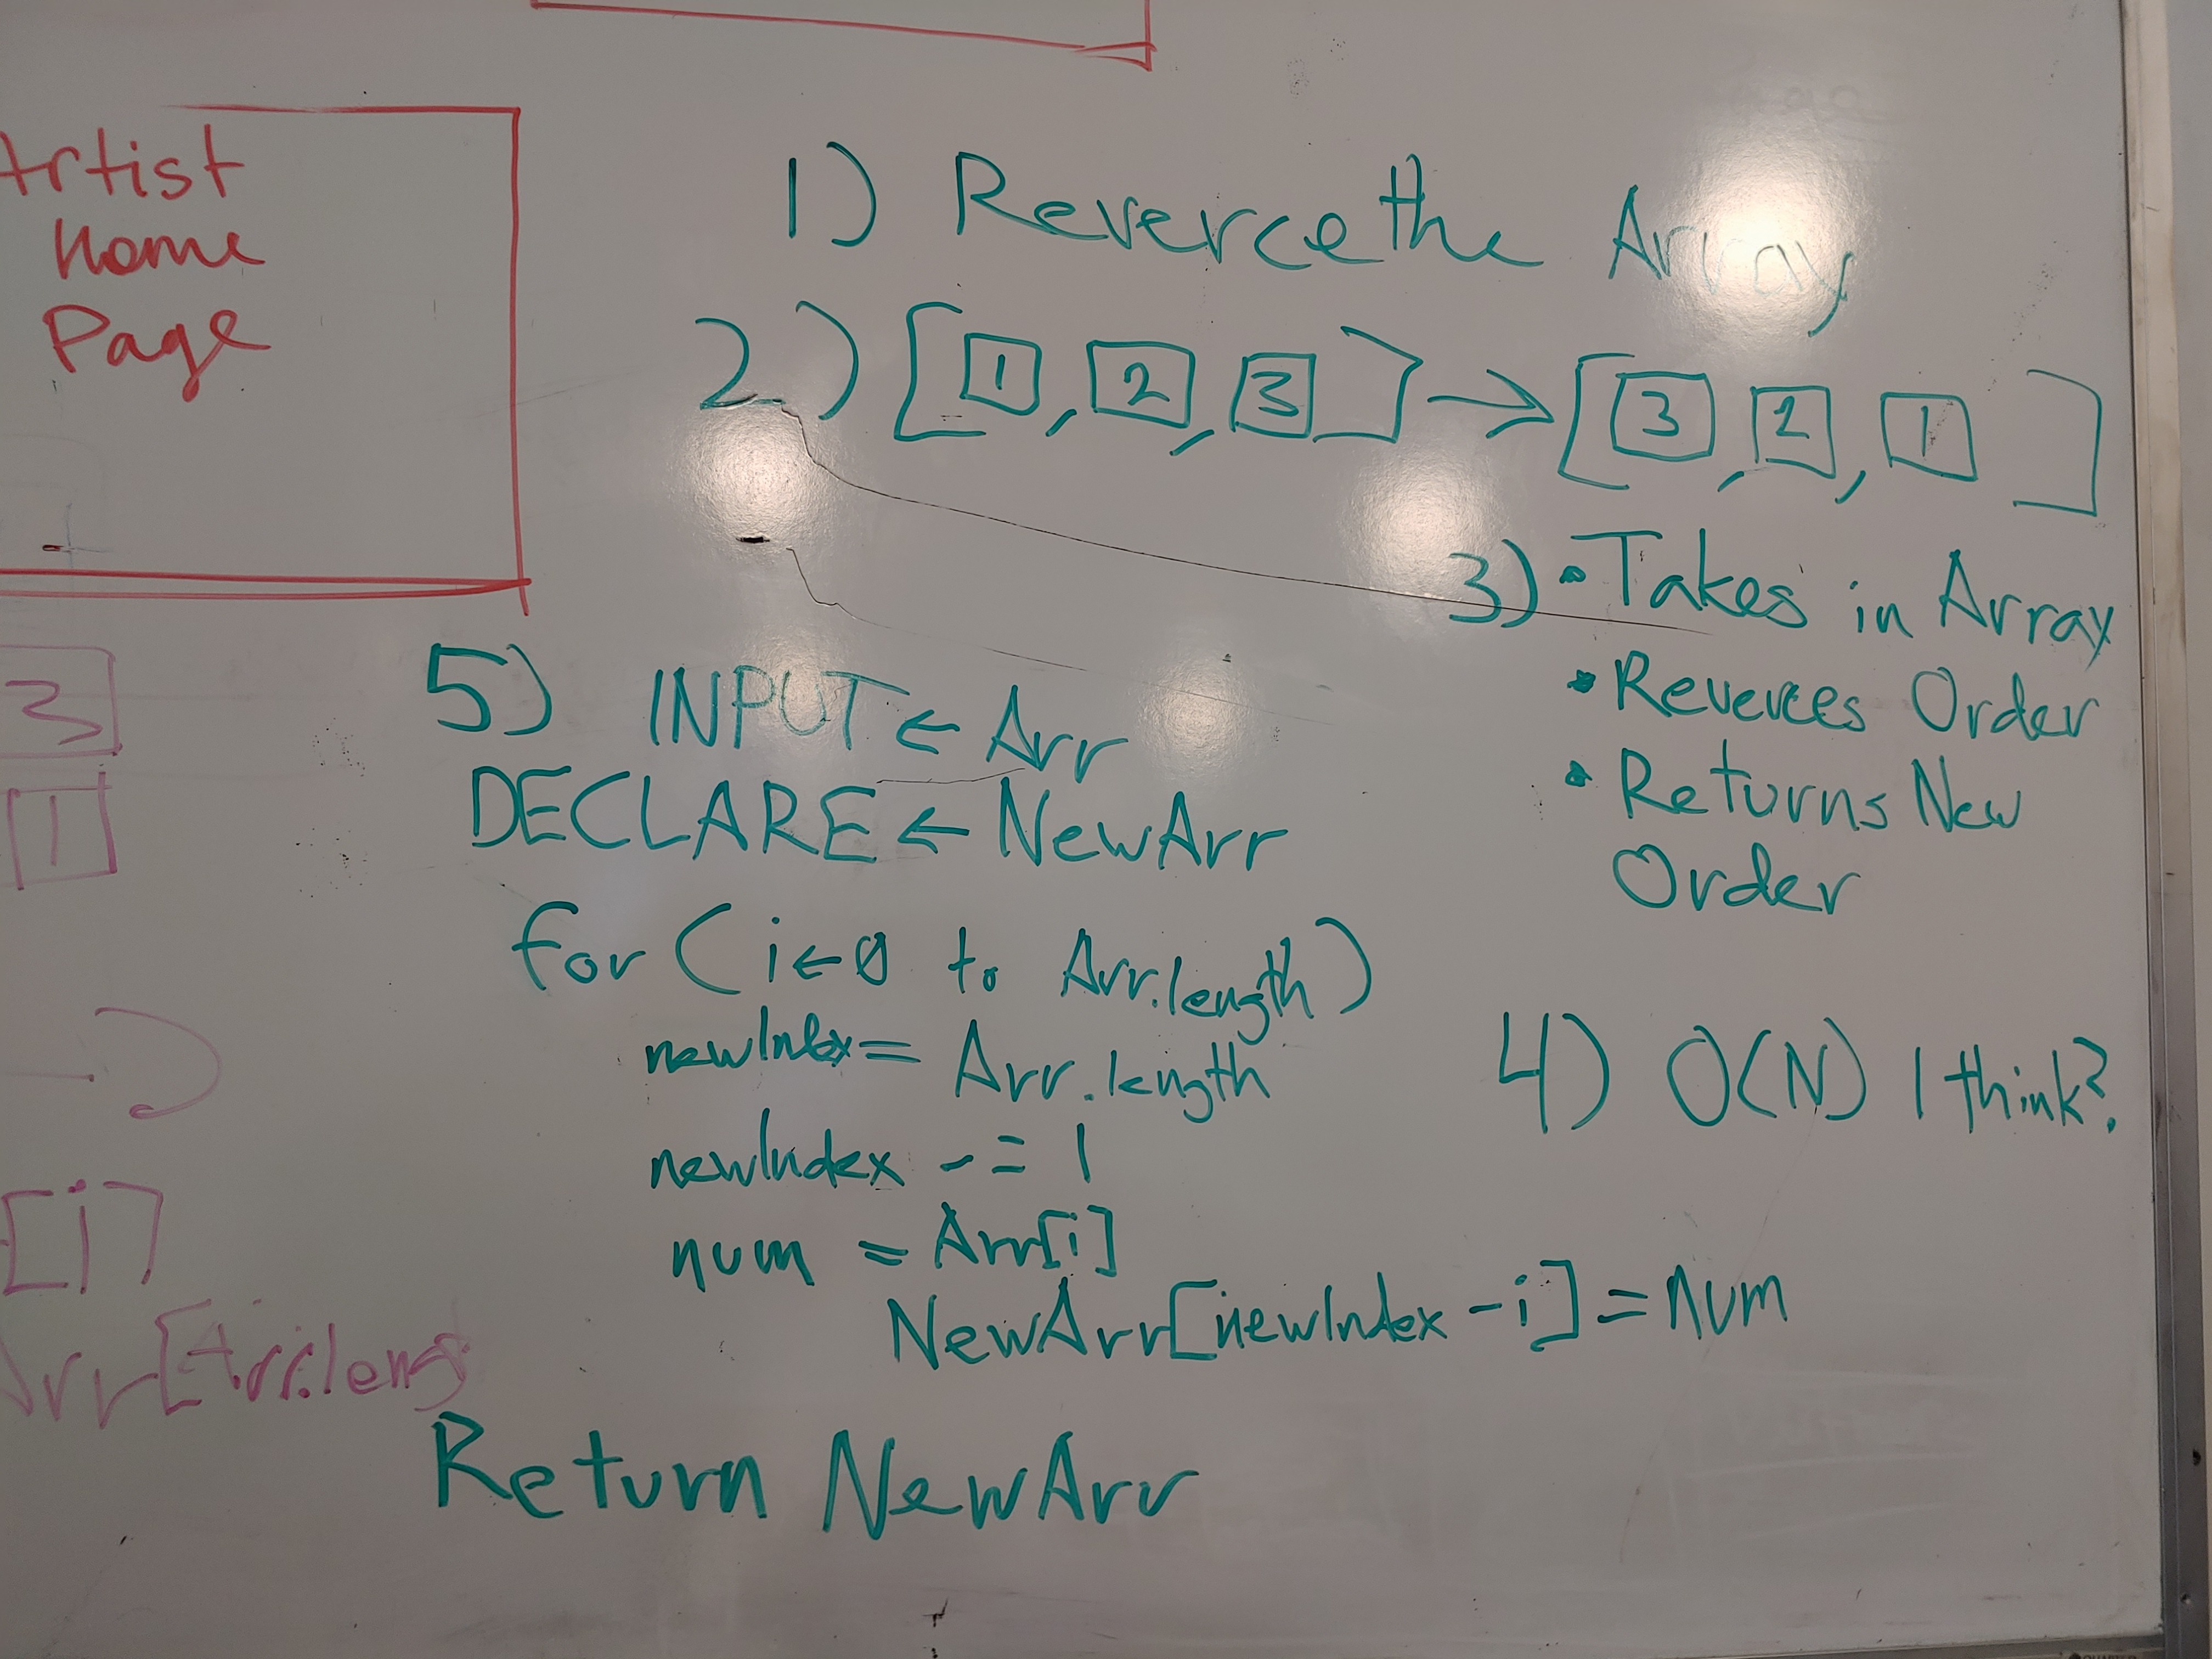 Artist
Home
Page
1) Reverce the Array
2) [1, 2, 3] → [3, 2, 1]
3) • Takes in Array
• Reverces Order
• Returns New
Order
4) O(N) I think?
5) INPUT ← Arr
DECLARE ← NewArr
for (i ← 0 to Arr.length)
newIndex = Arr.length
newIndex -= 1
num = Arr[i]
NewArr[newIndex - i] = num
Return NewArr
3
1
[i]
Arr[Arr.leng